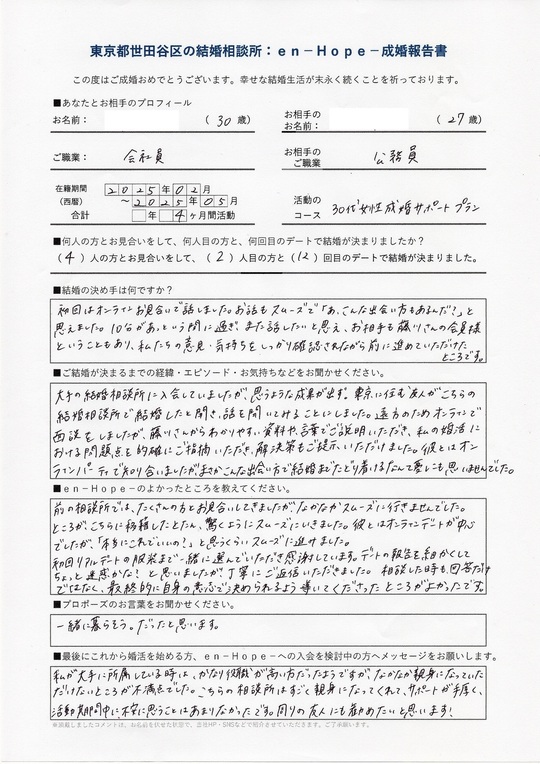 東京都世田谷区の結婚相談所：en－Hope－成婚報告書
この度はご成婚おめでとうございます。幸せな結婚生活が末永く続くことを祈っております。
■あなたとお相手のプロフィール
お名前： （30歳） お相手の お名前： （27歳）
ご職業： 会社員 お相手の ご職業 公務員
在籍期間 （西暦） 2025年02月
～2025年05月
合計 年4ヶ月間活動
活動の コース 30代女性成婚サポートプラン
■何人の方とお見合いをして、何人目の方と、何回目のデートで結婚が決まりましたか？
（4）人の方とお見合いをして、（2）人目の方と（12）回目のデートで結婚が決まりました。
■結婚の決め手は何ですか？
初回はオンラインお見合いで話しました。お話もスムーズで「あ、こんな出会い方もあるんだ！」と
思えました。10分があっという間に過ぎ、また話したいと思え、お相手も藤川さんの会員様
ということもあり、私たちの意見・気持ちをしっかり確認されながら前に進めていただけた
ところです。
■ご結婚が決まるまでの経緯・エピソード・お気持ちなどをお聞かせください。
大手の結婚相談所に入会していましたが、思うような成果が出ず。東京に住む友人がこちらの
結婚相談所で結婚したと聞き、話を聞いてみることにしました。遠方のためオンラインで
面談をしましたが、藤川さんからわかりやすい資料や言葉でご説明いただき、私の婚活に
おける問題点を的確にご指摘いただき、解決策もご提示いただけました。彼とはオン
ラインパーティで知り合いましたがまさかこんな出会い方で結婚までたどり着けるなんて夢にも思いませんでした。
■en-Hope-のよかったところを教えてください。
前の相談所では、たくさんの方とお見合いしてきましたが、なかなかスムーズに行きませんでした。
ところが、こちらに移籍したとたん、驚くようにスムーズにいきました。彼とはオンラインデートが中心
でしたが、「本当にこれでいいの！」と思うくらいスムーズに進みました。
初回リアルデートの服装まで一緒に選んでいただき感謝しています。デートの報告を細かくして
ちょっと迷惑かな？と思いましたが、丁寧にご返信いただきました。相談した時も回答だけ
ではなく、最終的に自身の意志で決められるよう導いてくださったところがよかったです。
■プロポーズのお言葉をお聞かせください。
一緒に暮らそう。だったと思います。
■最後にこれから婚活を始める方、en-Hope-への入会を検討中の方へメッセージをお願いします。
私が大手に所属している時は、かなり役職が高い方だったようですが、なかなか親身になっていた
だけないところが不満点でした。こちらの相談所はすごく親身になってくれて、サポートが手厚く、
活動期間中に不安に思うことはあまりなかったです。周りの友人にも勧めたいと思います！
※頂戴しましたコメントは、お名前を伏せた状態で、当社HP・SNSなどで紹介させていただきます。ご了承願います。